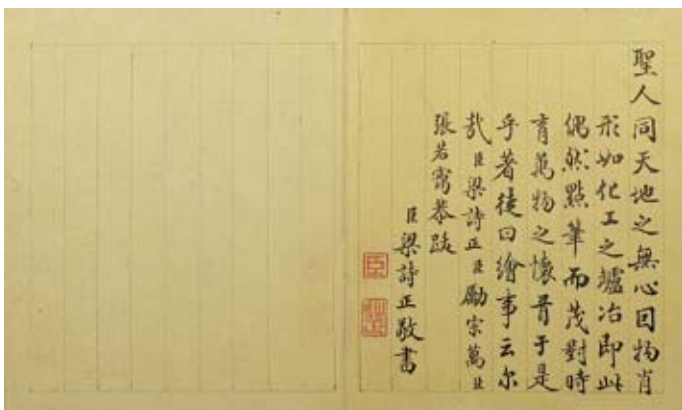 聖人同天地之無心因物肖
形如化工之爐冶即此
偶然點筆而茂對時
育萬物之懷胥于是
乎著徒曰繪事云尔
哉臣梁詩正臣勵宗萬臣
張若靄恭跋
臣梁詩正敬書
臣